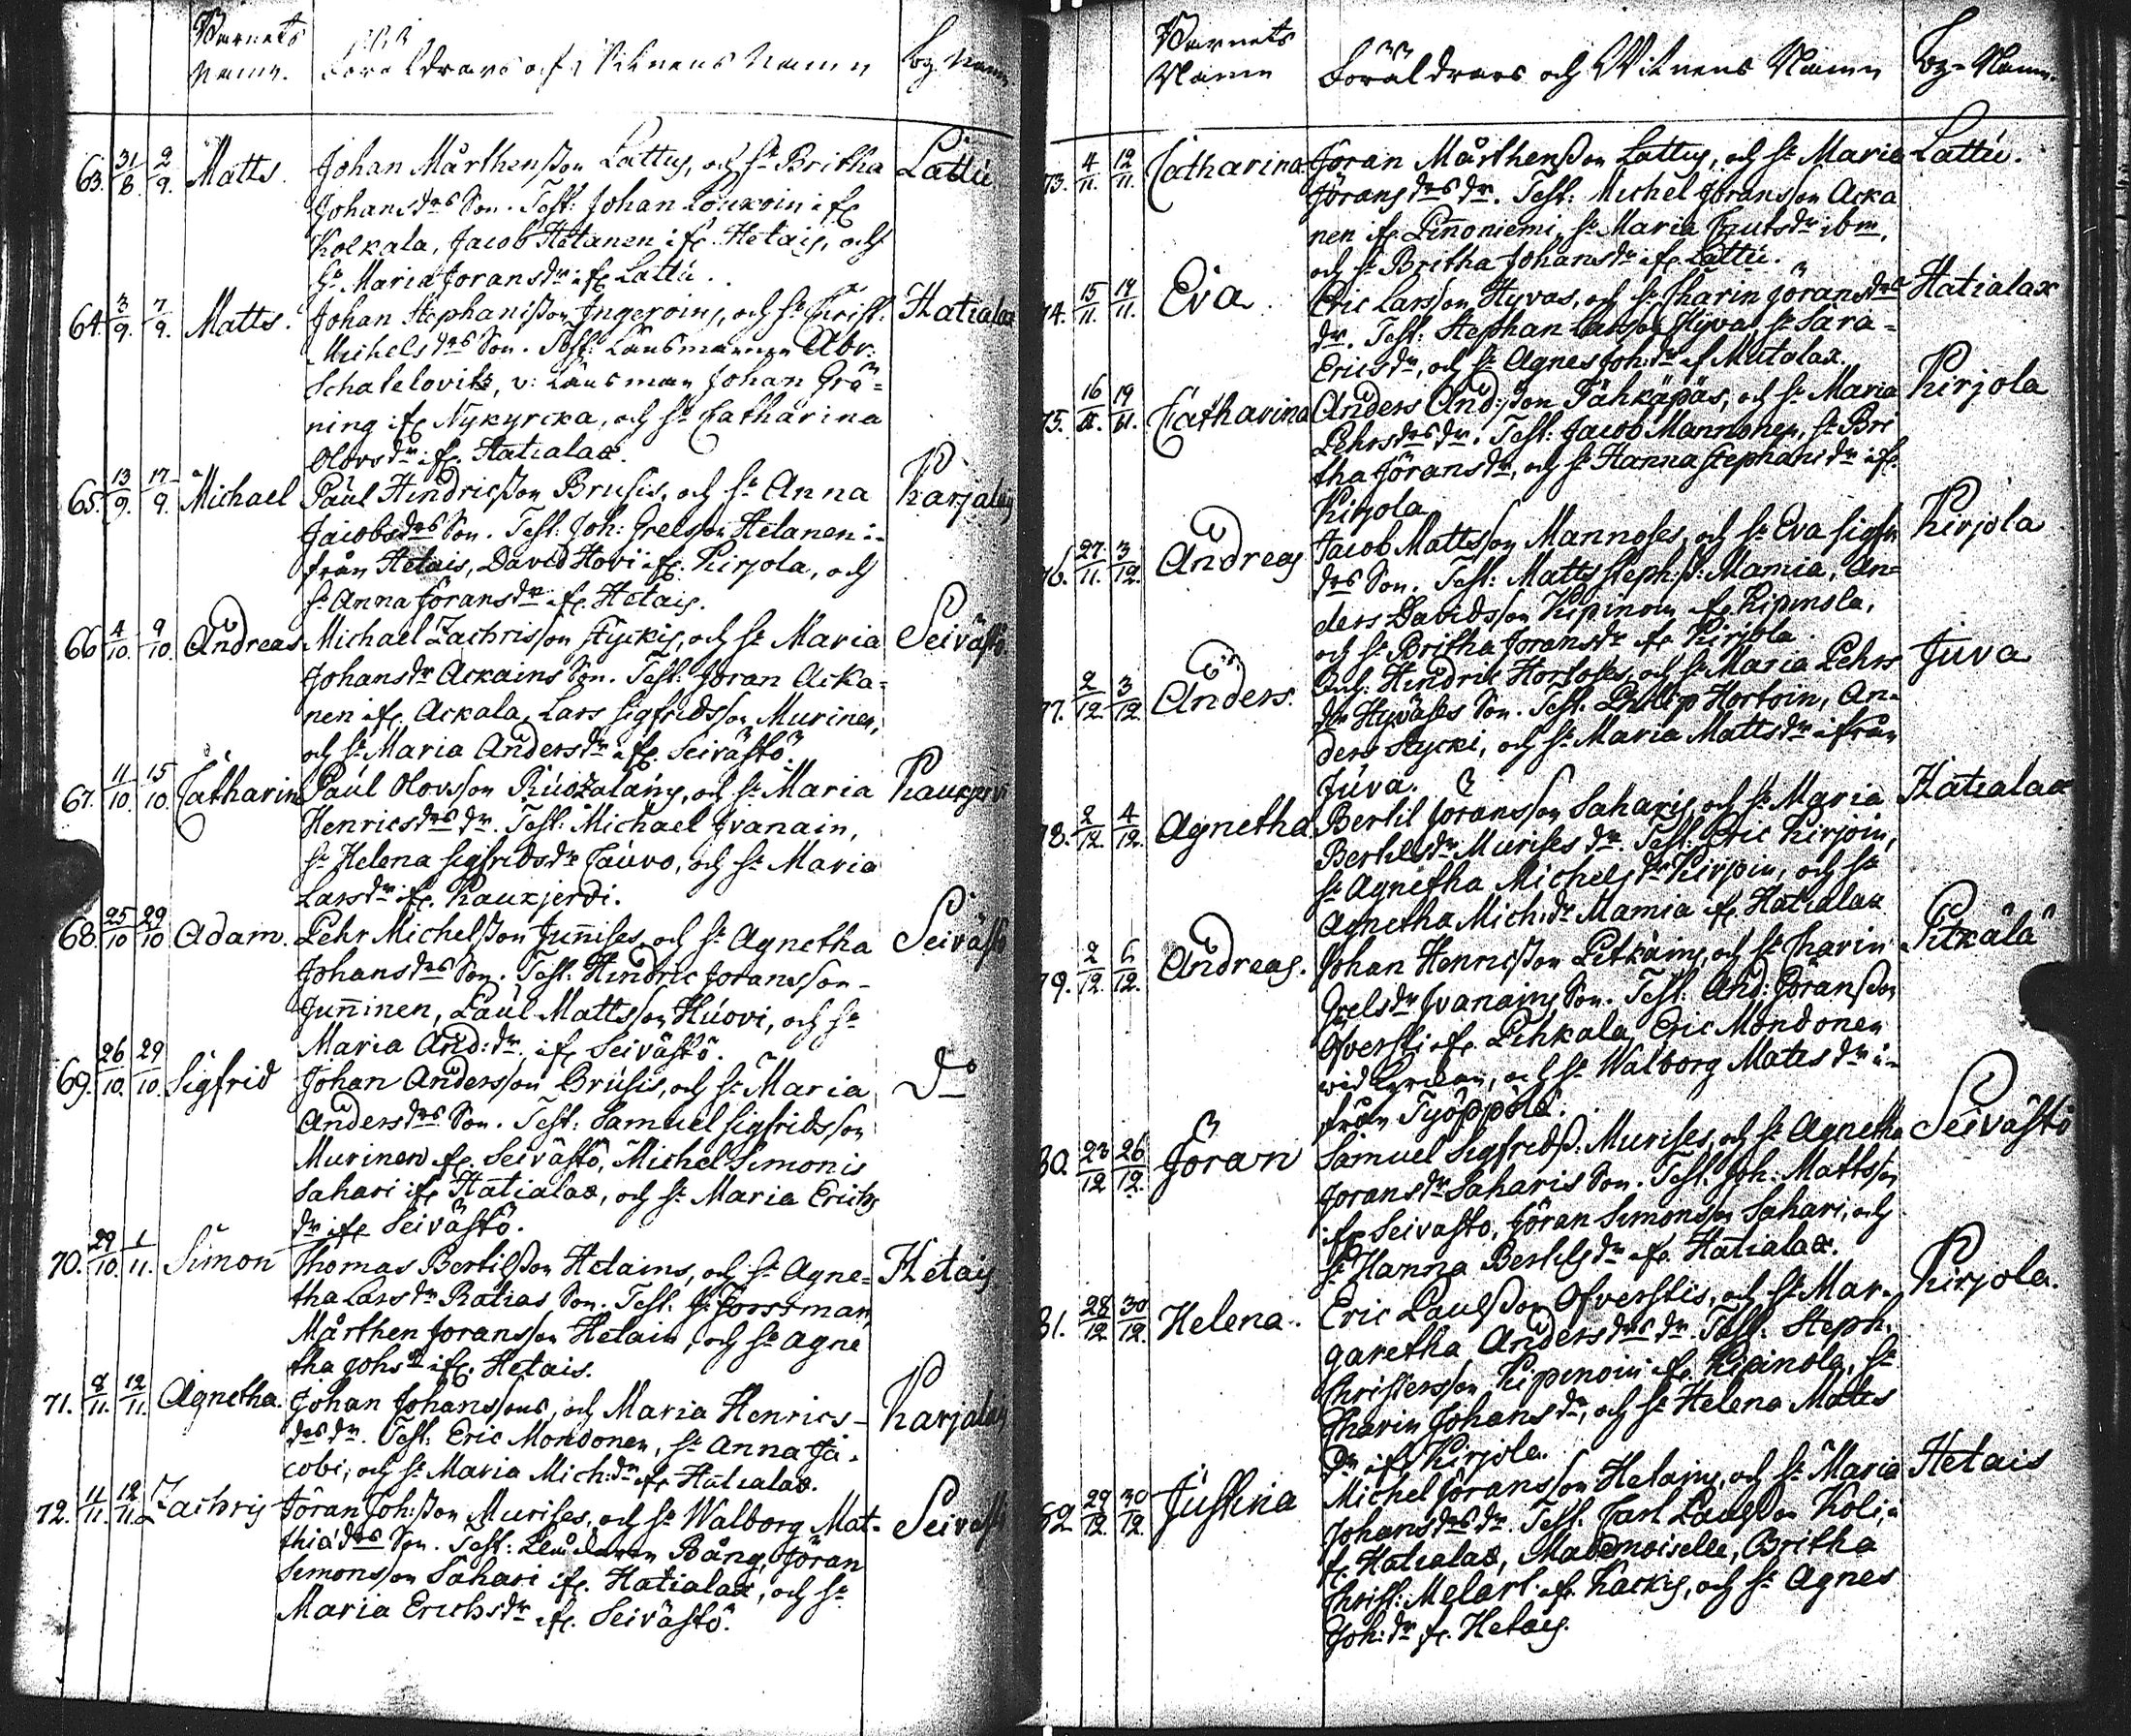 Barnets
Namn. Föräldrars och Witnens Namn By Namn
63. 31/8. 2/9. Matts. Johan Mårthensson Lattus, och H: Britha Lattu
Johansdrs Son. Test: Johan Loukoin ifr
Kolkala, Jacob Hetanen ifr. Hetais, och
H: Maria Joransdr ifr Lattu.
64. 3/9. 7/9. Matts. Johan Stephanisson Ingeroins, och H: Christ. Hatialax
Michelsdrs Son. Test: Länsmannen Abr:
Schatelovitz, v: Länsman Johan Grö-
ning ifr Nykyrcka, och H: Catharina
Olovsdr ifr. Hatialax.
65. 13/9. 17/9. Michael Paul Hindricsson Brusis, och H: Anna Karjalais
Jacobsdrs Son. Test: Joh: Grelsson Hetanen i-
från Hetais, David Hovi ifr. Kirjola, och
H: Anna Joransdr ifr. Hetais.
66 4/10. 9/10. Andreas Michael Zachrisson Styckis, och H: Maria Seivästö
Johansdr Ackains Son. Test: Joran Acka-
nen ifr. Ackala, Lars Sigfridsson Murinen,
och H: Maria Andersdr ifr. Seivästö.
67. 11/10. 15/10. Catharina Paul Olovsson Ruozalains, och H: Maria Kaukjervi
Henricsdrs dr. Test: Michael Ivanain,
H: Helena Sigfridsdr Tauvo, och H: Maria
Larsdr ifr. Kaukjerdi.
68. 25/10 29/10 Adam. Pehr Michelsson Junnises, och H: Agnetha Seivästö
Johansdrs Son. Test: Hindric Joransson-
Junninen, Paul Mattsson Huovi, och H:
Maria And:dr ifr Seivästö.
69. 26/10. 29/10 Sigfrid Johan Andersson Brusis, och H: Maria Do
Andersdrs Son. Test: Samuel Sigfridsson
Murinen ifr. Seivästö, Michel Simonis
Sahari ifr Hatialax, och H: Maria Erichs
dr ifr Seivästö.
70. 29/10. 1/11. Simon Thomas Bertilsson Hetains, och H: Agne- Hetais
tha Larsdr Ratias Son. Test. G: Forssman,
Mårthen Joransson Hetain, och H: Agne
tha Johsdr ifr. Hetais.
71. 8/11. 12/11. Agnetha. Johan Johanssons, och Maria Henrics- Karjalais
drs dr. Test: Eric Mondonen, H: Anna Ja-
cobi, och H: Maria Mich:dr ifr Hatialax.
72. 11/11. 12/11. Zachris Jöran Joh:sson Murises, och H: Walborg Mat- Seivästö
thiædrs Son. Test: Bång, Jöran
Simonsson Sahari ifr. Hatialax, och H:
Maria Erichsdr ifr. Seivästö.
Barnets
Namn Föräldrars och Witnens Namn By=Namn.
73. 4/11. 12/11. Catharina. Jöran Mårthensson Lattus, och H: Maria Lattu.
Jöransdrs dr. Test: Michel Joransson Acka
nen ifr Pinoniemi, H: Maria Knutsdr ibm,
och H: Britha Johansdr ifr. Lattu.
74. 15/11. 19/11. Eva. Eric Larsson Hyvas, och H: Charin Joransdrs Hatialax
dr. Test: Stephan Larsson Hyva, H: Sara-
Ericsdr, och H: Agnes Joh:dr if Mutalax.
75. 16/11. 19/11. Catharina Anders And:sson Tähkäpäs, och H: Maria Kirjola
Pehrsdrs dr. Test: Jacob Mannonen, H: Bri
tha Joransdr, och H: Hanna Stephansdr ifr.
Kirjola
76. 27/11. 3/12. Andreas Jacob Mattsson Mannoses, och H: Eva Sigfri Kirjola
drs Son. Test: Matts Steph:s: Mamia, An-
ders Davidsson Kipinoin ifr Kipinola,
och H: Britha Joransdr ifr Kirjola.
77. 2/12. 3/12. Anders. Hindric Hortoses, och H: Maria Pehrs Juva
dr Hyväses Son. Test. Philip Hortoin, An-
ders Stycki, och H: Maria Mattsdr ifrån
Juva.
78. 2/12. 4/12. Agnetha Bertil Joransson Saharis och H: Maria Hatialax
Bertilsdr Murises dr. Test: Eric Kirjoin,
H: Agnetha Michelsdr Kirjoin, och H:
Agnetha Mich:dr Mamia ifr Hatialax
79. 2/12. 6/12. Andreas. Johan Henricsson Pitkäins, och H: Charin Pitkälä
Grelsdr Ivanains Son. Test: And: Göransson
Ofversti ifr. Pihkala, Eric Mondonen
wid Kyrckan, och H: Walborg Matts dr i-
från Työppölä.
80. 23/12 26/12. Jöran Samuel Sigfridss: Murises, och H: Agnetha Seivästö
Joransdr Saharis Son. Test: Joh: Mattsson
ifr Seivasto, Jöran Simonsson Sahari, och
H: Hanna Bertilsdr ifr. Hatialax.
81. 28/12 30/12. Helena. Eric Paulsson Ofverstis, och H: Mar- Kirjola.
garetha Andersdrs dr. Test: Steph:
Christersson Kipinoin ifr. Kipinola, H:
Charin Johansdr, och H: Helena Matts
dr ifr Kirjola.
82 29/12 30/12. Justina Michel Joransson Hetains, och H: Maria Hetais
Johansdrs dr. Test: Carl Paulsson Koli i-
fr. Hatialax, Mademoiselle, Britha
Christ: Melart ifr Kackis, och H: Agnes
Joh:dr fr. Hetais.